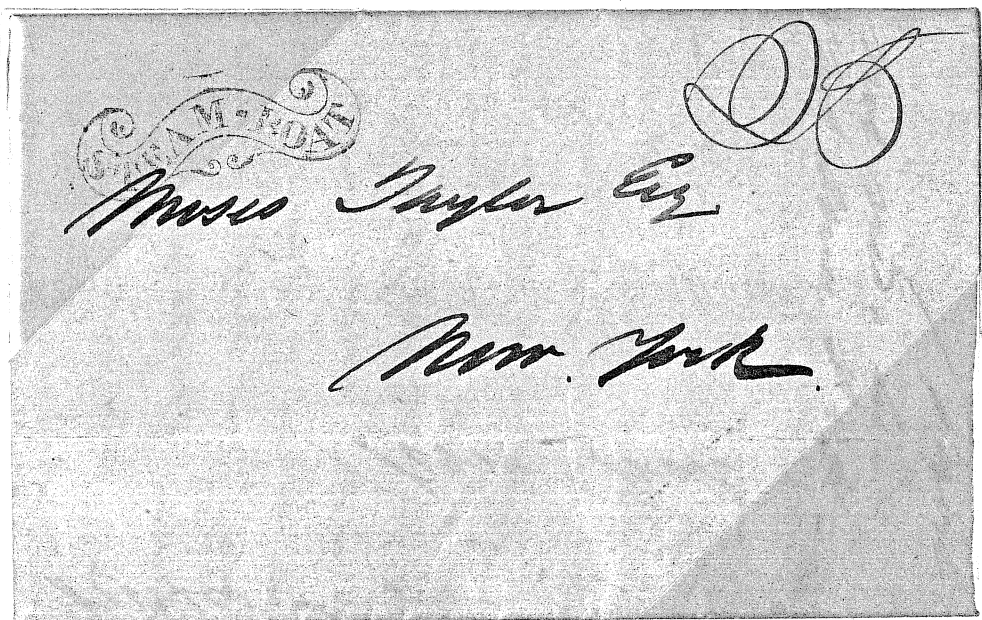 STEAM-BOAT
Moses Taylor Esq.
New. York.